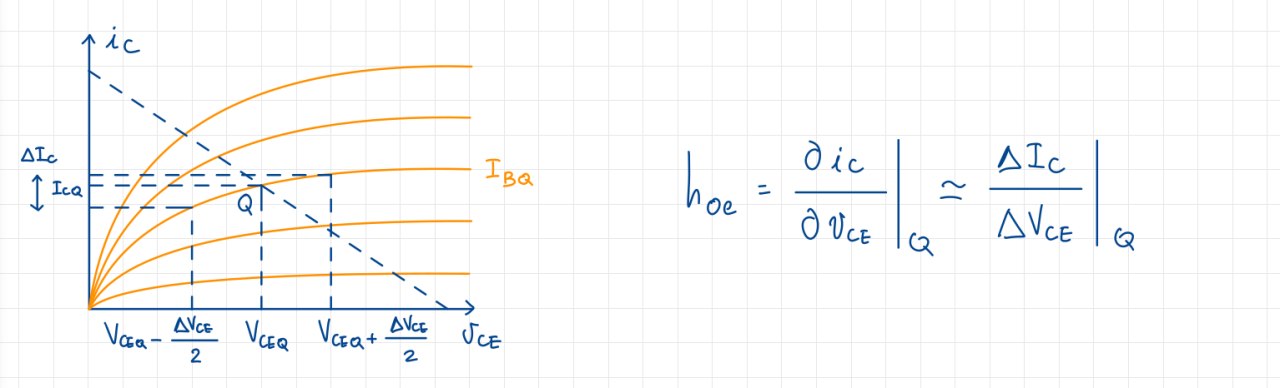 i_C
ΔI_C
I_CQ
I_BQ
Q
V_CEQ - ΔV_CE/2
V_CEQ
V_CEQ + ΔV_CE/2
v_CE
h_oe = ∂i_C/∂v_CE |_Q ≃ ΔI_C/ΔV_CE |_Q